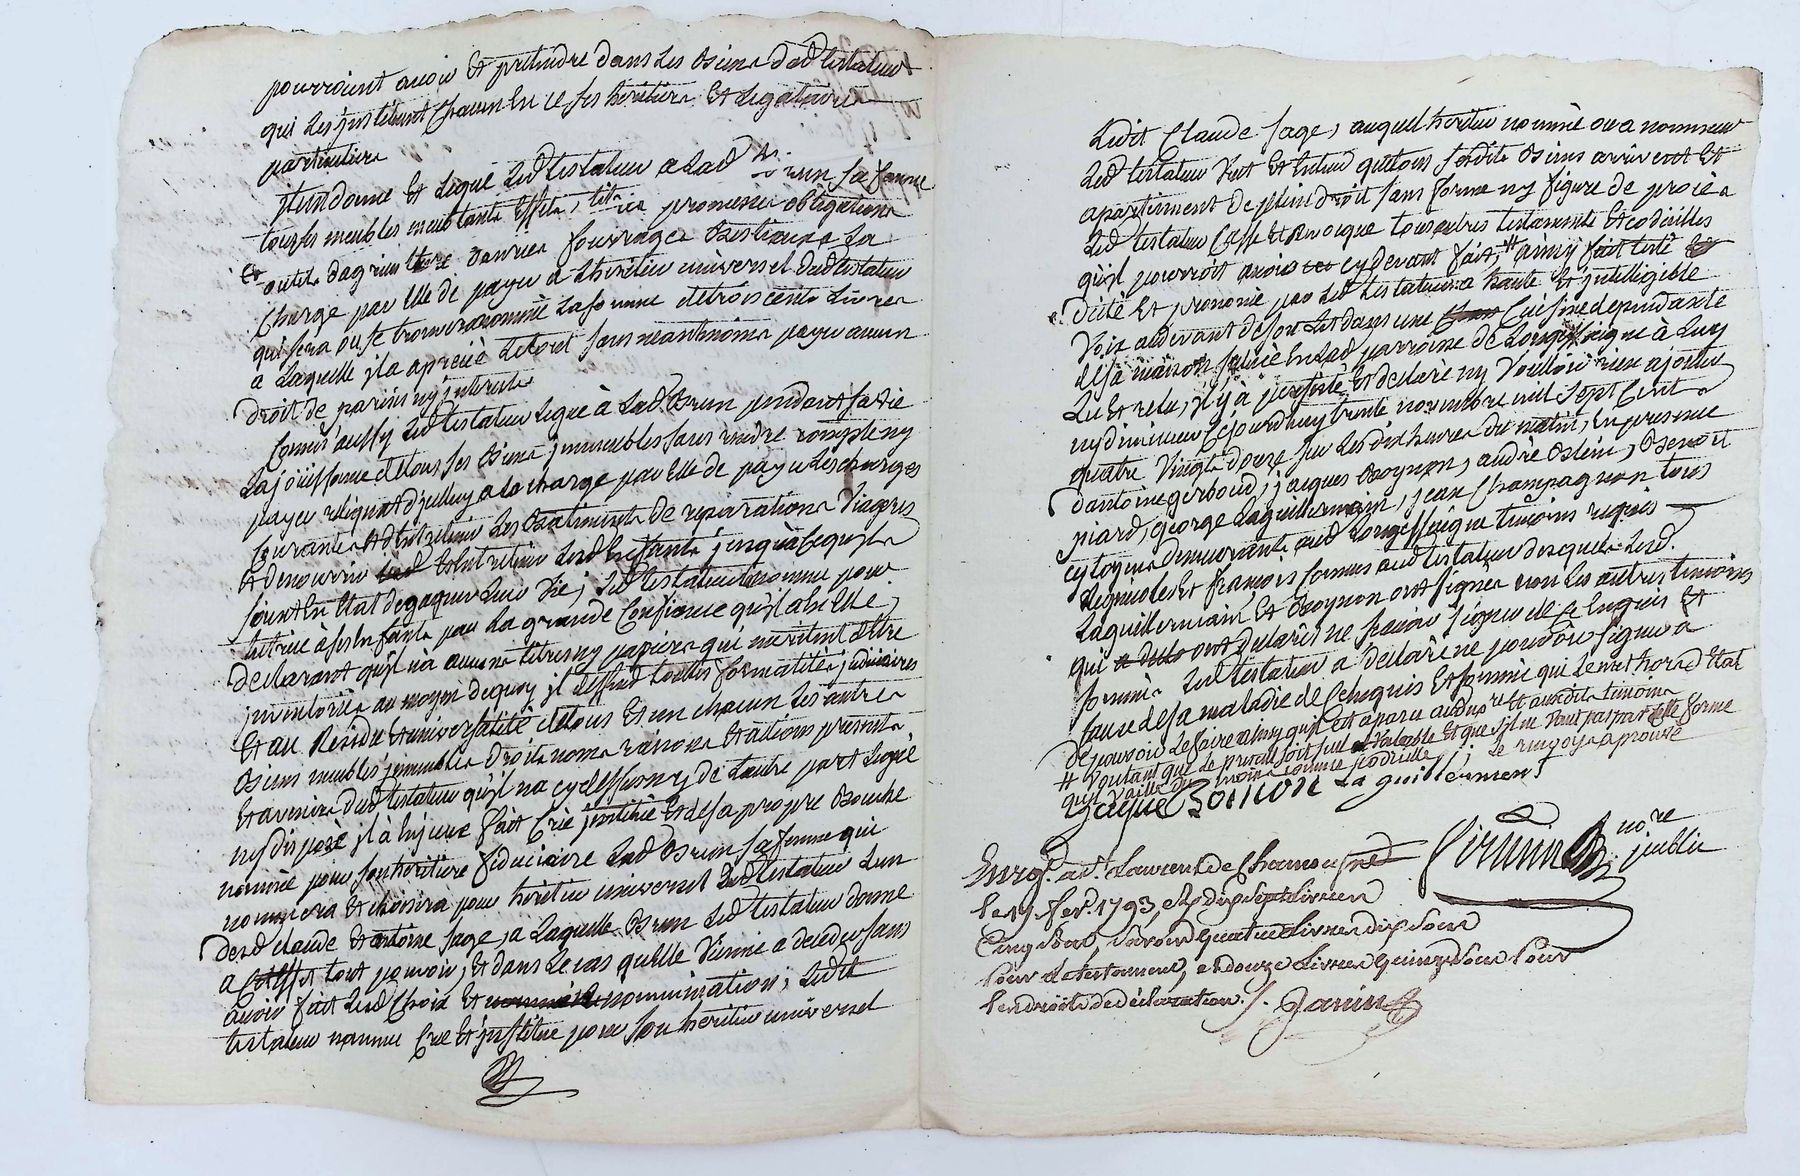 pourroient avoir Et pretendre dans Les Biens dud testateur
qui Les jnstituent Chacun En ce ses heritiers Et Legataires
particuliers
jtem donne Et Legue Led testateur a Lad Brun sa femme
tous ses meubles meublants Effets, titres promesses obligations
et outils dagriculture danrées fourrages Bestiaux a La
Charge par Elle de payer a Lheritier universel dud testateur
qui sera ou se trouvera nommé La somme de trois cents Livres
a Laquelle jl a aprecié Le tout sans neantmoins payer aucun
droit de parisis ny jnterests
Comm'aussy Led testateur Legue à Lad. Brun pendant sa vie
La joüissance de tous ses Biens jmmeubles sans rendre compte ny
payer reliquat d'jcelluy a la charge par Elle de payer Les charges
Courantes d'Entretenir Les Batiments de reparations Viageres
Et de nourrir Et Entretenir Lesd Enfants jusqu'à Ce qu'jls
soient En Etat de gagner Leur Vie; Led testateur La nomme pour
tutrice à ses Enfants par La grande Confiance qu'jl a En Elle,
declarant qu'jl n'a aucuns titres ny papiers qui meritent d'Etre
jnventoriés au moyen de quoy jl deffend touttes formalités judiciaires
Et au Residu Et universalité de tous Et un chacun Les autres
Biens meubles jmmeubles droits noms raisons Et actions presents
Et avenirs dud testateur qu'jl n'a cy dessus ny de Lautre part Legué
ny disposé jl a Enjceux fait Créé jnstitué Et de sa propre Bouche
nommé pour son heritiere fiduciaire Lad Brun sa femme qui
nommera Et choisira pour heritier universel dud testateur Lun
desd Claude Et antoine sage, a Laquelle Brun Led testateur donne
a Cet Effet tout pouvoir, Et dans Le cas qu'elle Vienne a deceder sans
avoir fait Led Choix Et nomination, Ledit
testateur nomme Cree Et jnstitue pour son heritier universel
Ledit Claude sage, auquel heritier nommé ou a nommer
Led testateur Veut Et Entend que tous sesdits Biens arrivent Et
apartiennent de plein droit sans forme ny figure de procès
Led testateur Casse Et Revoque tous autres testaments Et codicilles
qu'jl pourroit avoir cy devant fait, # ainsy fait testé
dicté Et prononcé par Led testateur a haute Et jntelligible
Voix au devant de son Lit dans une Cuisine dependante
de sa maison située En Lad parroisse de Longessaigne à Luy
Lu Et relu, jl y à persisté Et declaré ny Voulloir rien ajouter
ny diminuer Cejourd'huy trente novembre mil sept Cent
quatre Vingt douze sur Les dix heures du matin, En presence
d'antoine gerboud, jacques Boynon, andré Blein, Benoit
piard, george Laguillermain, jean Champagnon tous
cytoyens demeurants aud Longessaigne temoins requis
Et françois connus aud testateur desquels Lesd.
Laguillermain Et Boynon ont signés non Les autres temoins
qui ont declarés ne sçavoir signer de ce Enquis Et
sommés Led testateur a déclaré ne pouvoir signer a
cause de sa maladie de Ce Enquis Et sommé qui Le met hors d'Etat
de pouvoir Le faire ainsy qu'jl Est aparu aud nore Et auxdits temoins
# Voulant que Le present soit seul Valable Et que s'jl ne Vaut pas par telle forme
qu'jl Vaille du moins comme codicille; Le renvoy aprouvé
Jaque Boinon La guillermen
nore
public
Enrgt. a St. Laurent de Chamousset
le 17 fevr. 1793, Rs dix sept livres
Cinq sols, savoir quatre livres dix sous
pour le testament, et douze livres quinze sous pour
les droits de déclaration. Janin